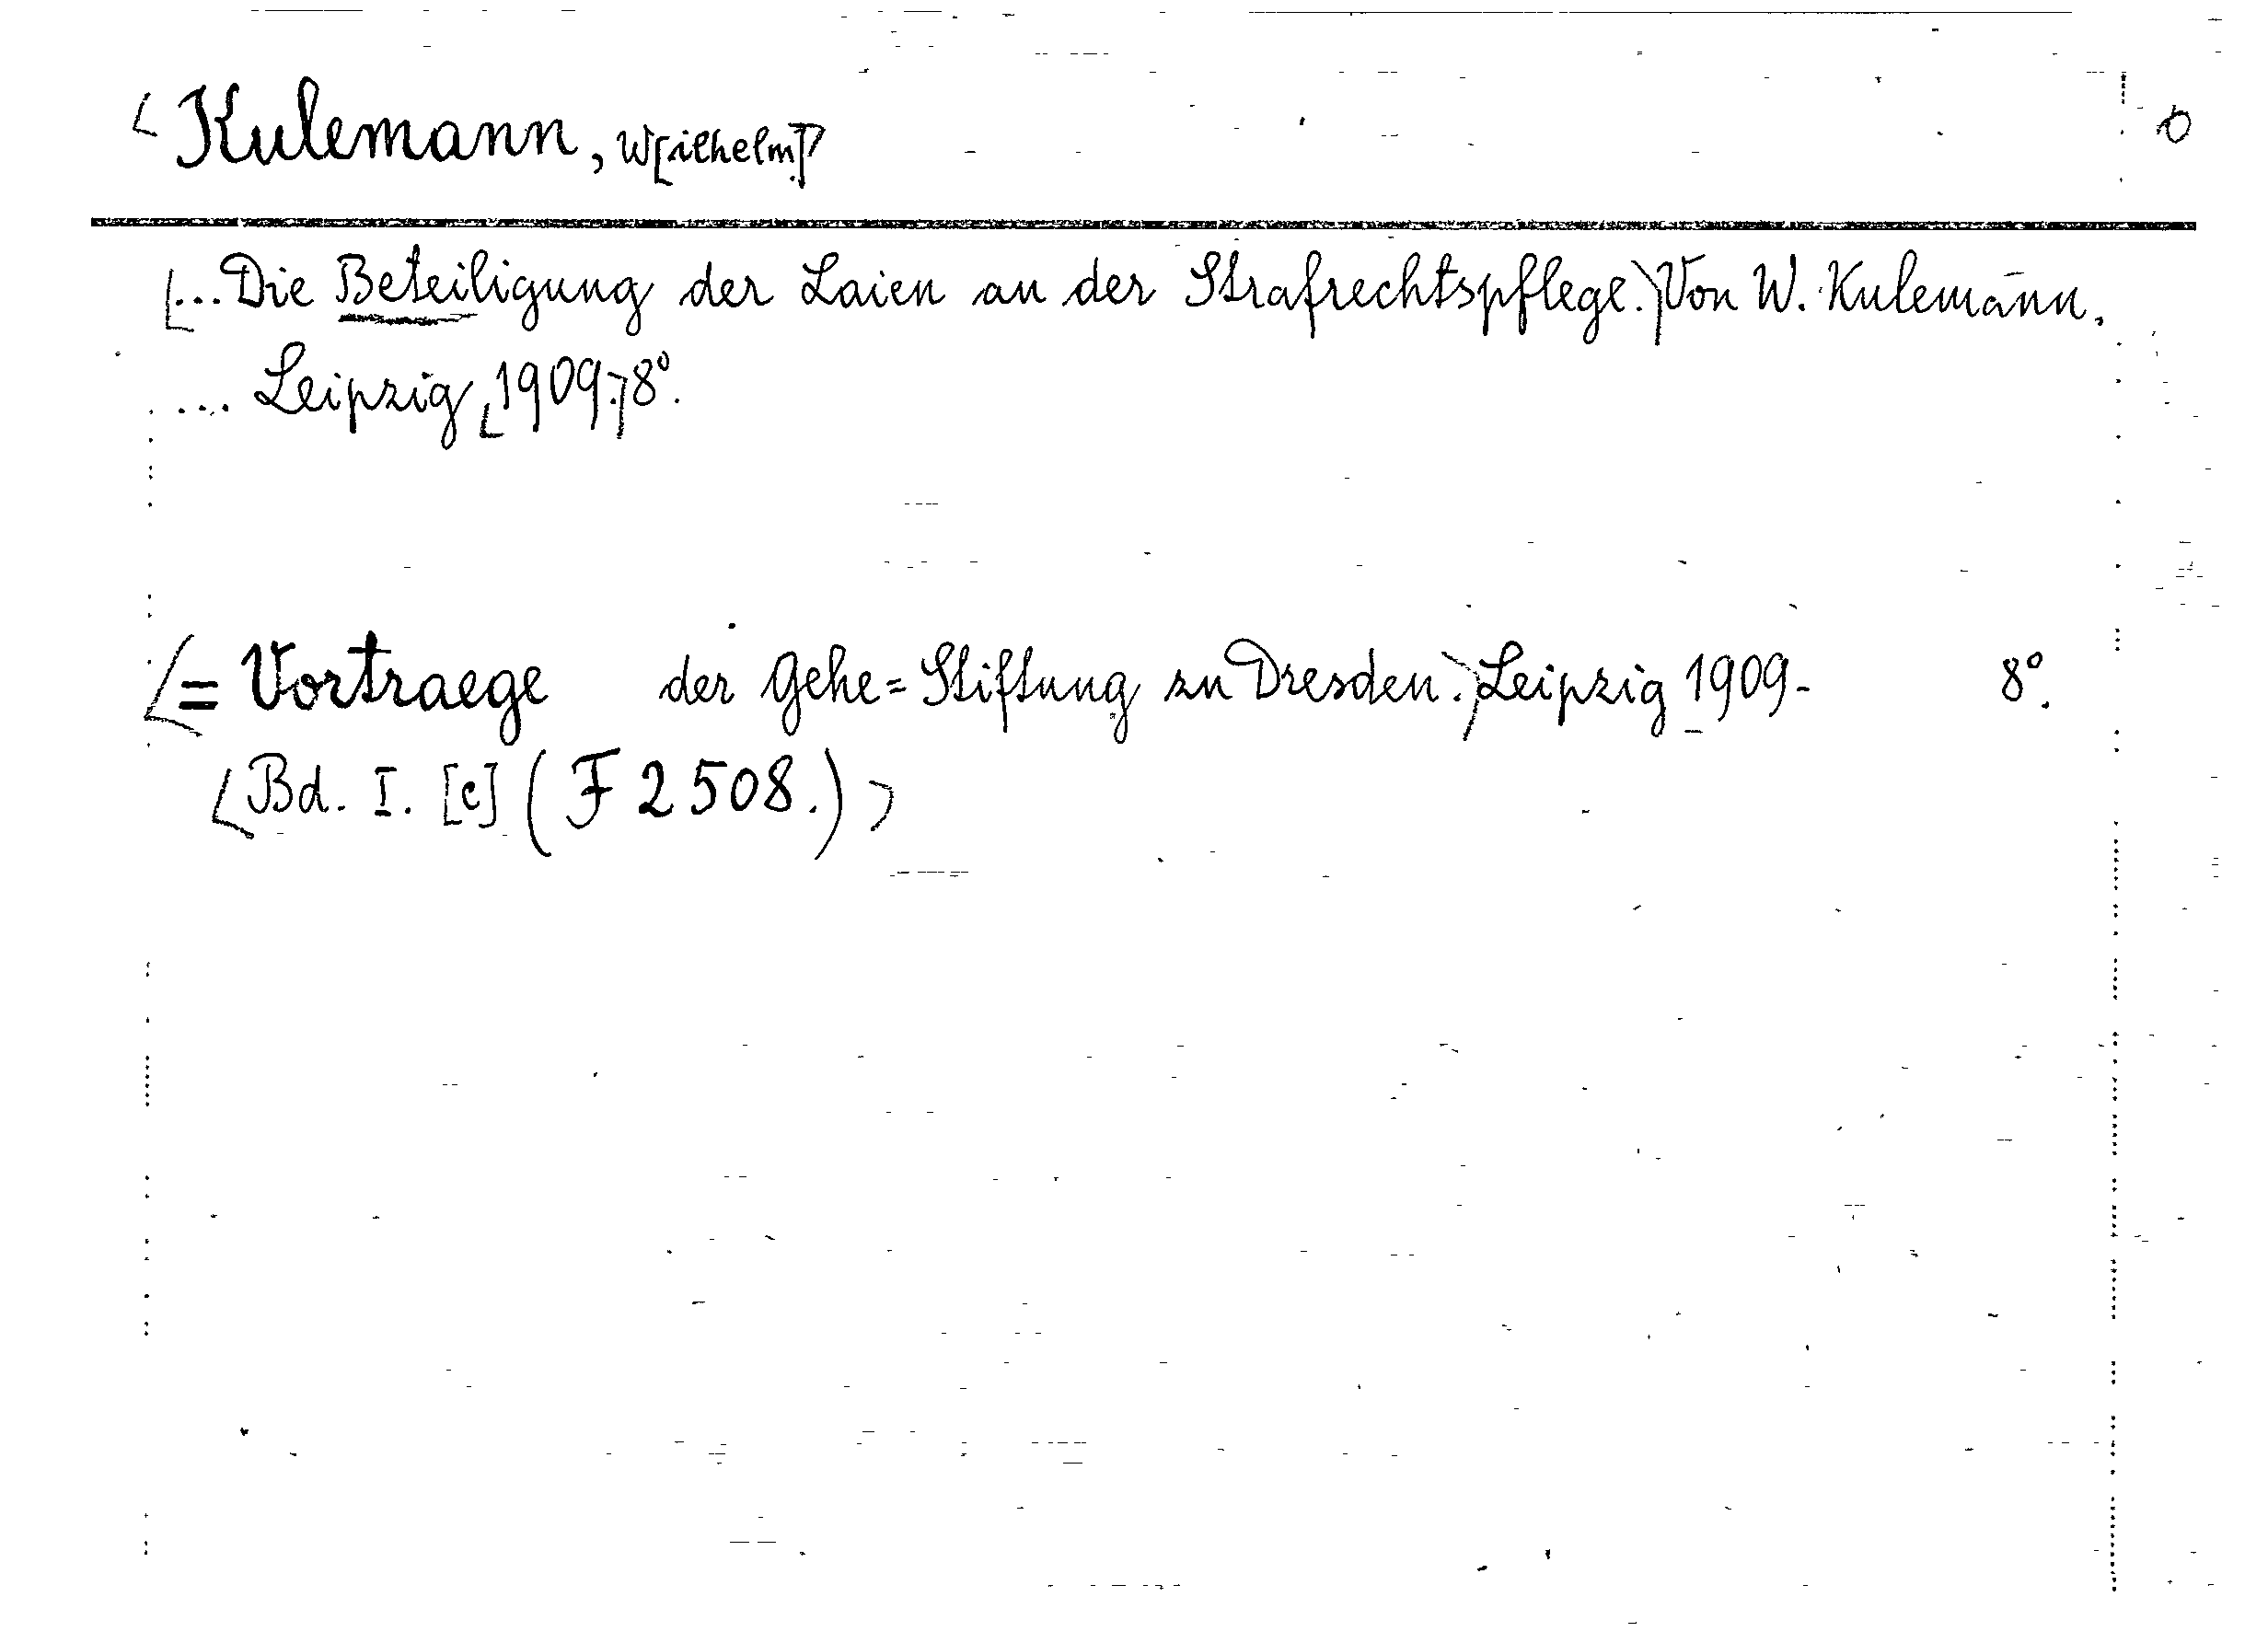 Kulemann, W[ilhelm]
... Die Beteiligung der Laien an der Strafrechtspflege. Von W. Kulemann.
... Leipzig 1909. 8°.
= Vortraege der Gehe=Stiftung zu Dresden. Leipzig 1909- 8°.
Bd. I. [c] (F 2508.)